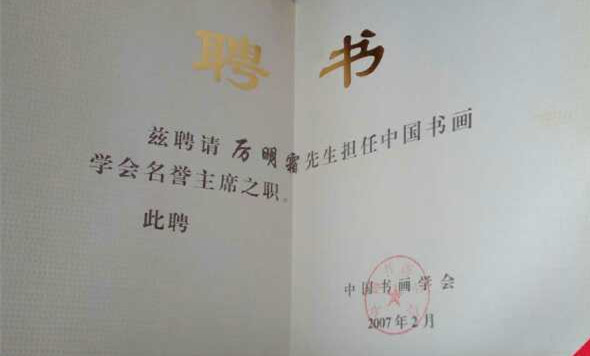 聘书
兹聘请厉明霜先生担任中国书画
学会名誉主席之职。
此聘
中国书画学会
2007年2月